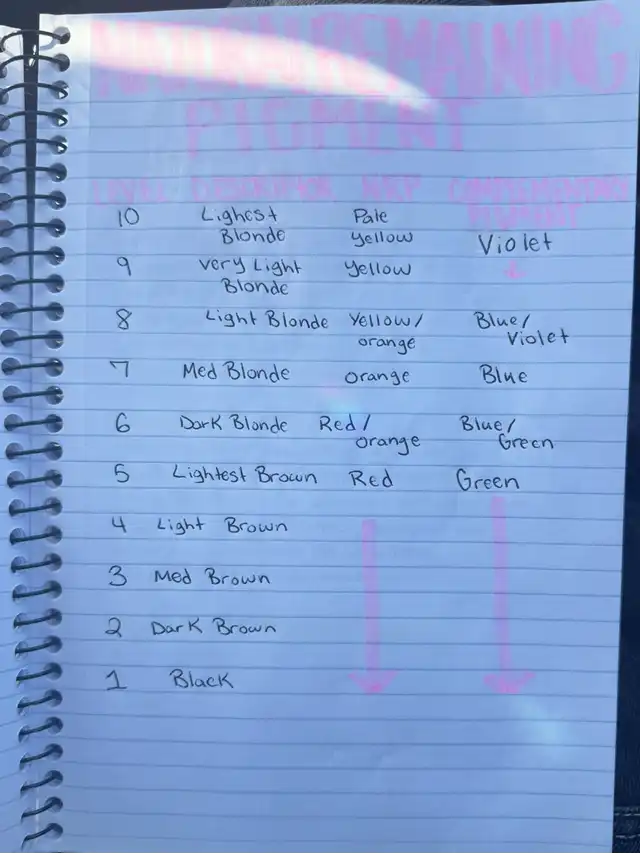 NATURAL REMAINING
PIGMENT
LEVEL DESCRIPTION NRP COMPLEMENTARY
PIGMENT
10 Lighest Pale
Blonde yellow Violet
9 Very Light Yellow
Blonde
8 Light Blonde Yellow/ Blue/
orange Violet
7 Med Blonde orange Blue
6 Dark Blonde Red/ Blue/
orange Green
5 Lightest Brown Red Green
4 Light Brown
3 Med Brown
2 Dark Brown
1 Black